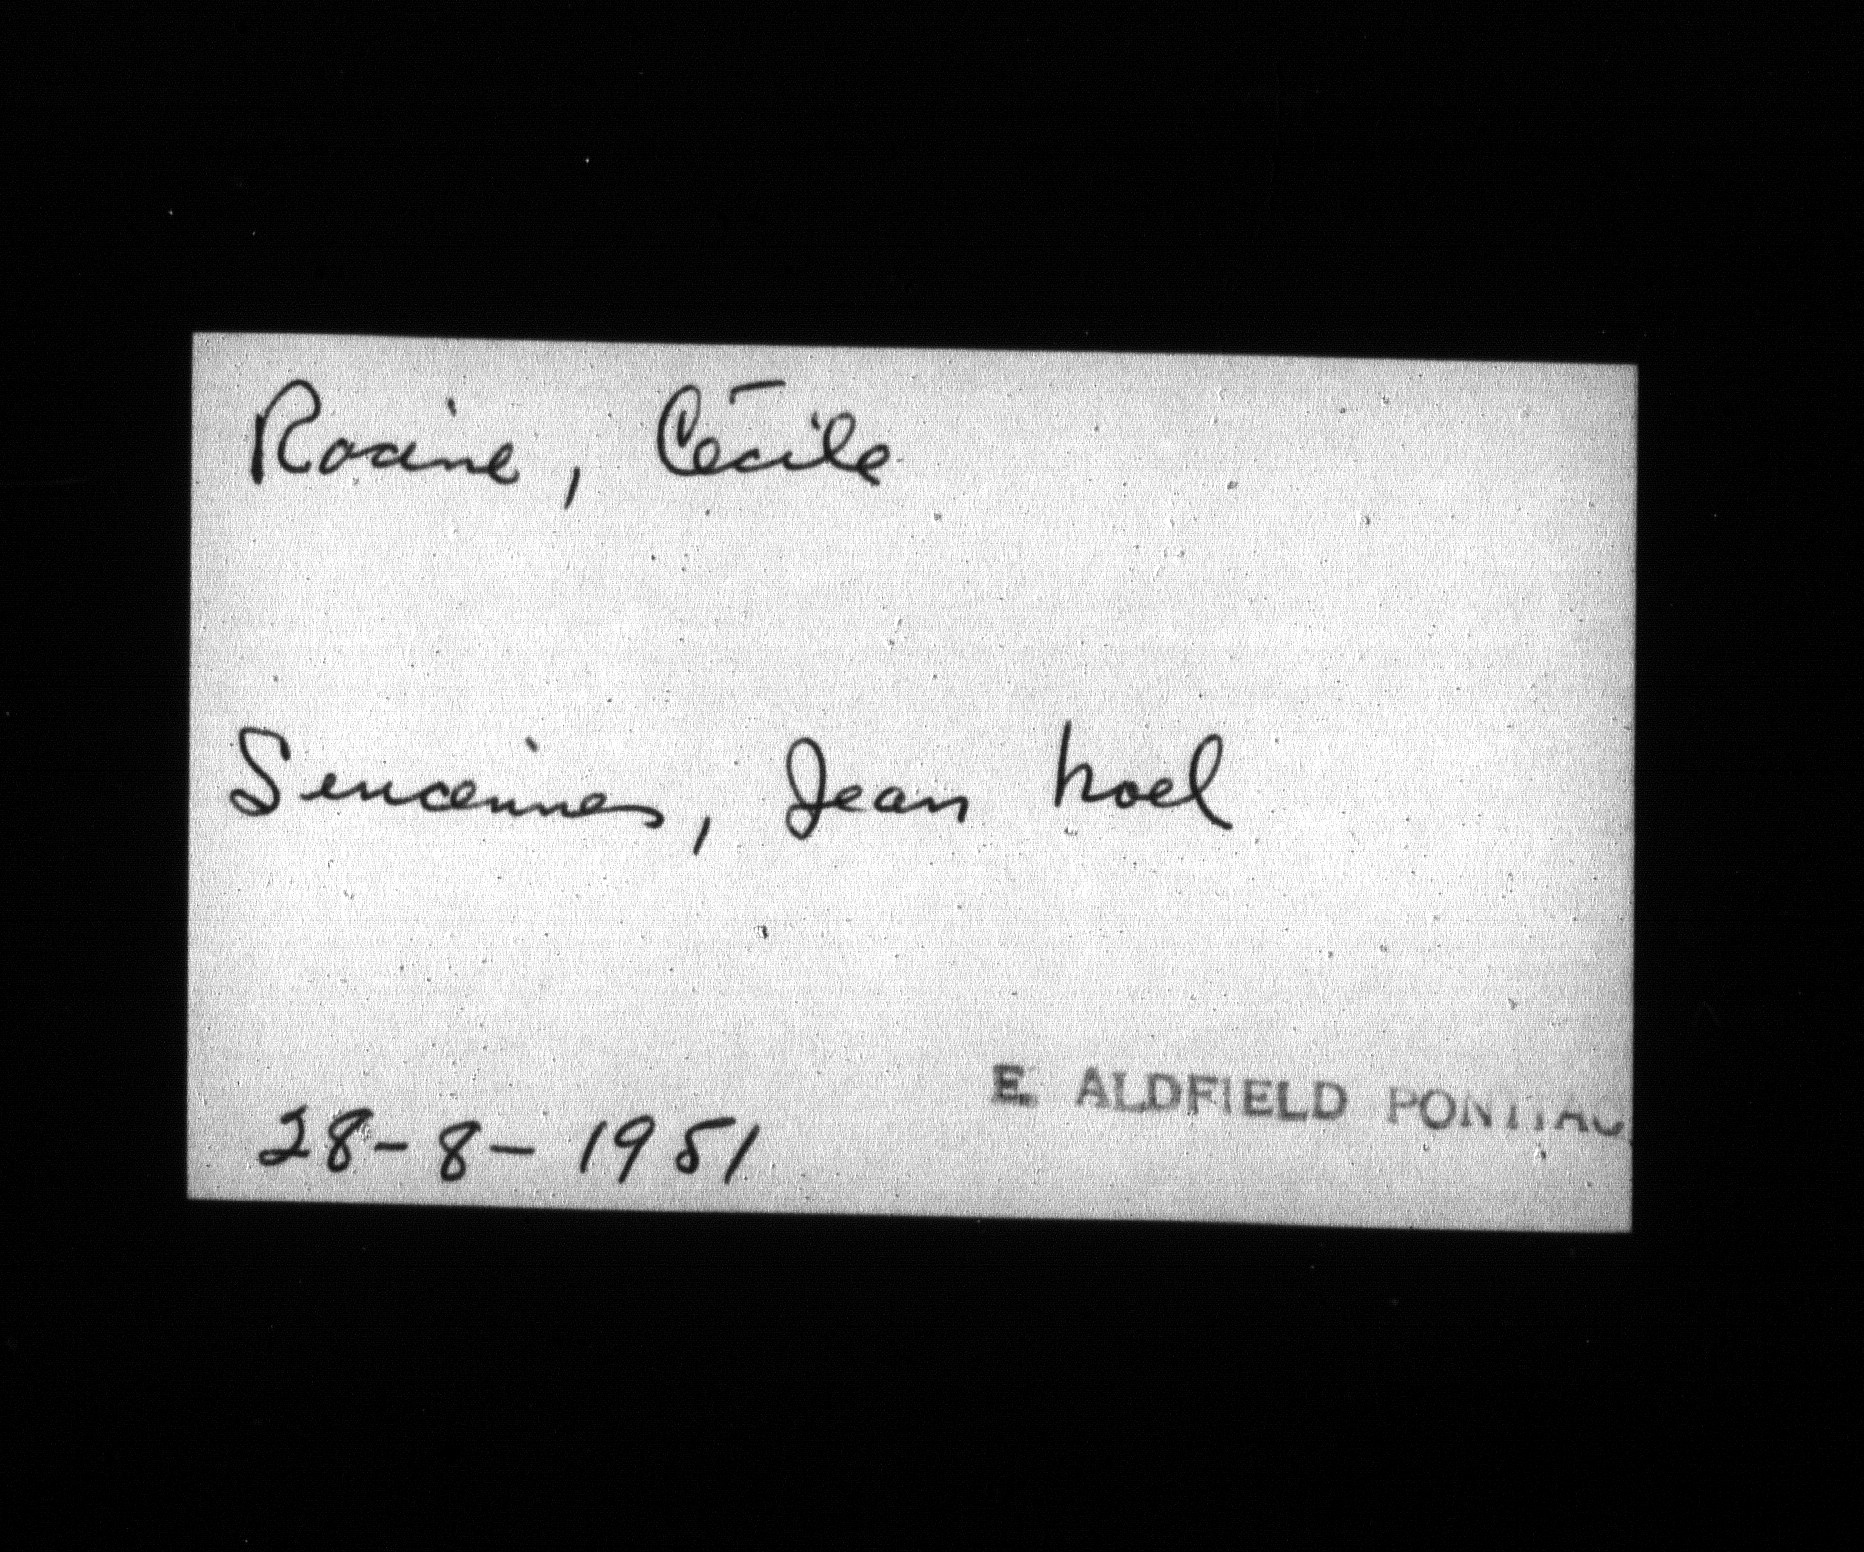 Racine, Cécile
Sencennes, Jean Noel
28-8-1951
E. ALDFIELD PONTIAC